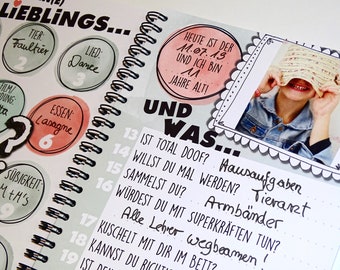 LIEBLINGS...
TIER:
Faultier
2
LIED:
Dance
3
ESSEN:
Lasagne
6
SÜßIGKEIT:
M&M's
9
HEUTE IST DER
11.07.19
UND ICH BIN
11
JAHRE ALT!
UND
WAS...
13
IST TOTAL DOOF? Hausaufgaben
WILLST DU MAL WERDEN? Tierarzt
SAMMELST DU? Armbänder
WÜRDEST DU MIT SUPERKRÄFTEN TUN?
Alle Lehrer wegbeamen!
KUSCHELT MIT DIR IM BETT?
KANNST DU RICHTIG
17
19
20